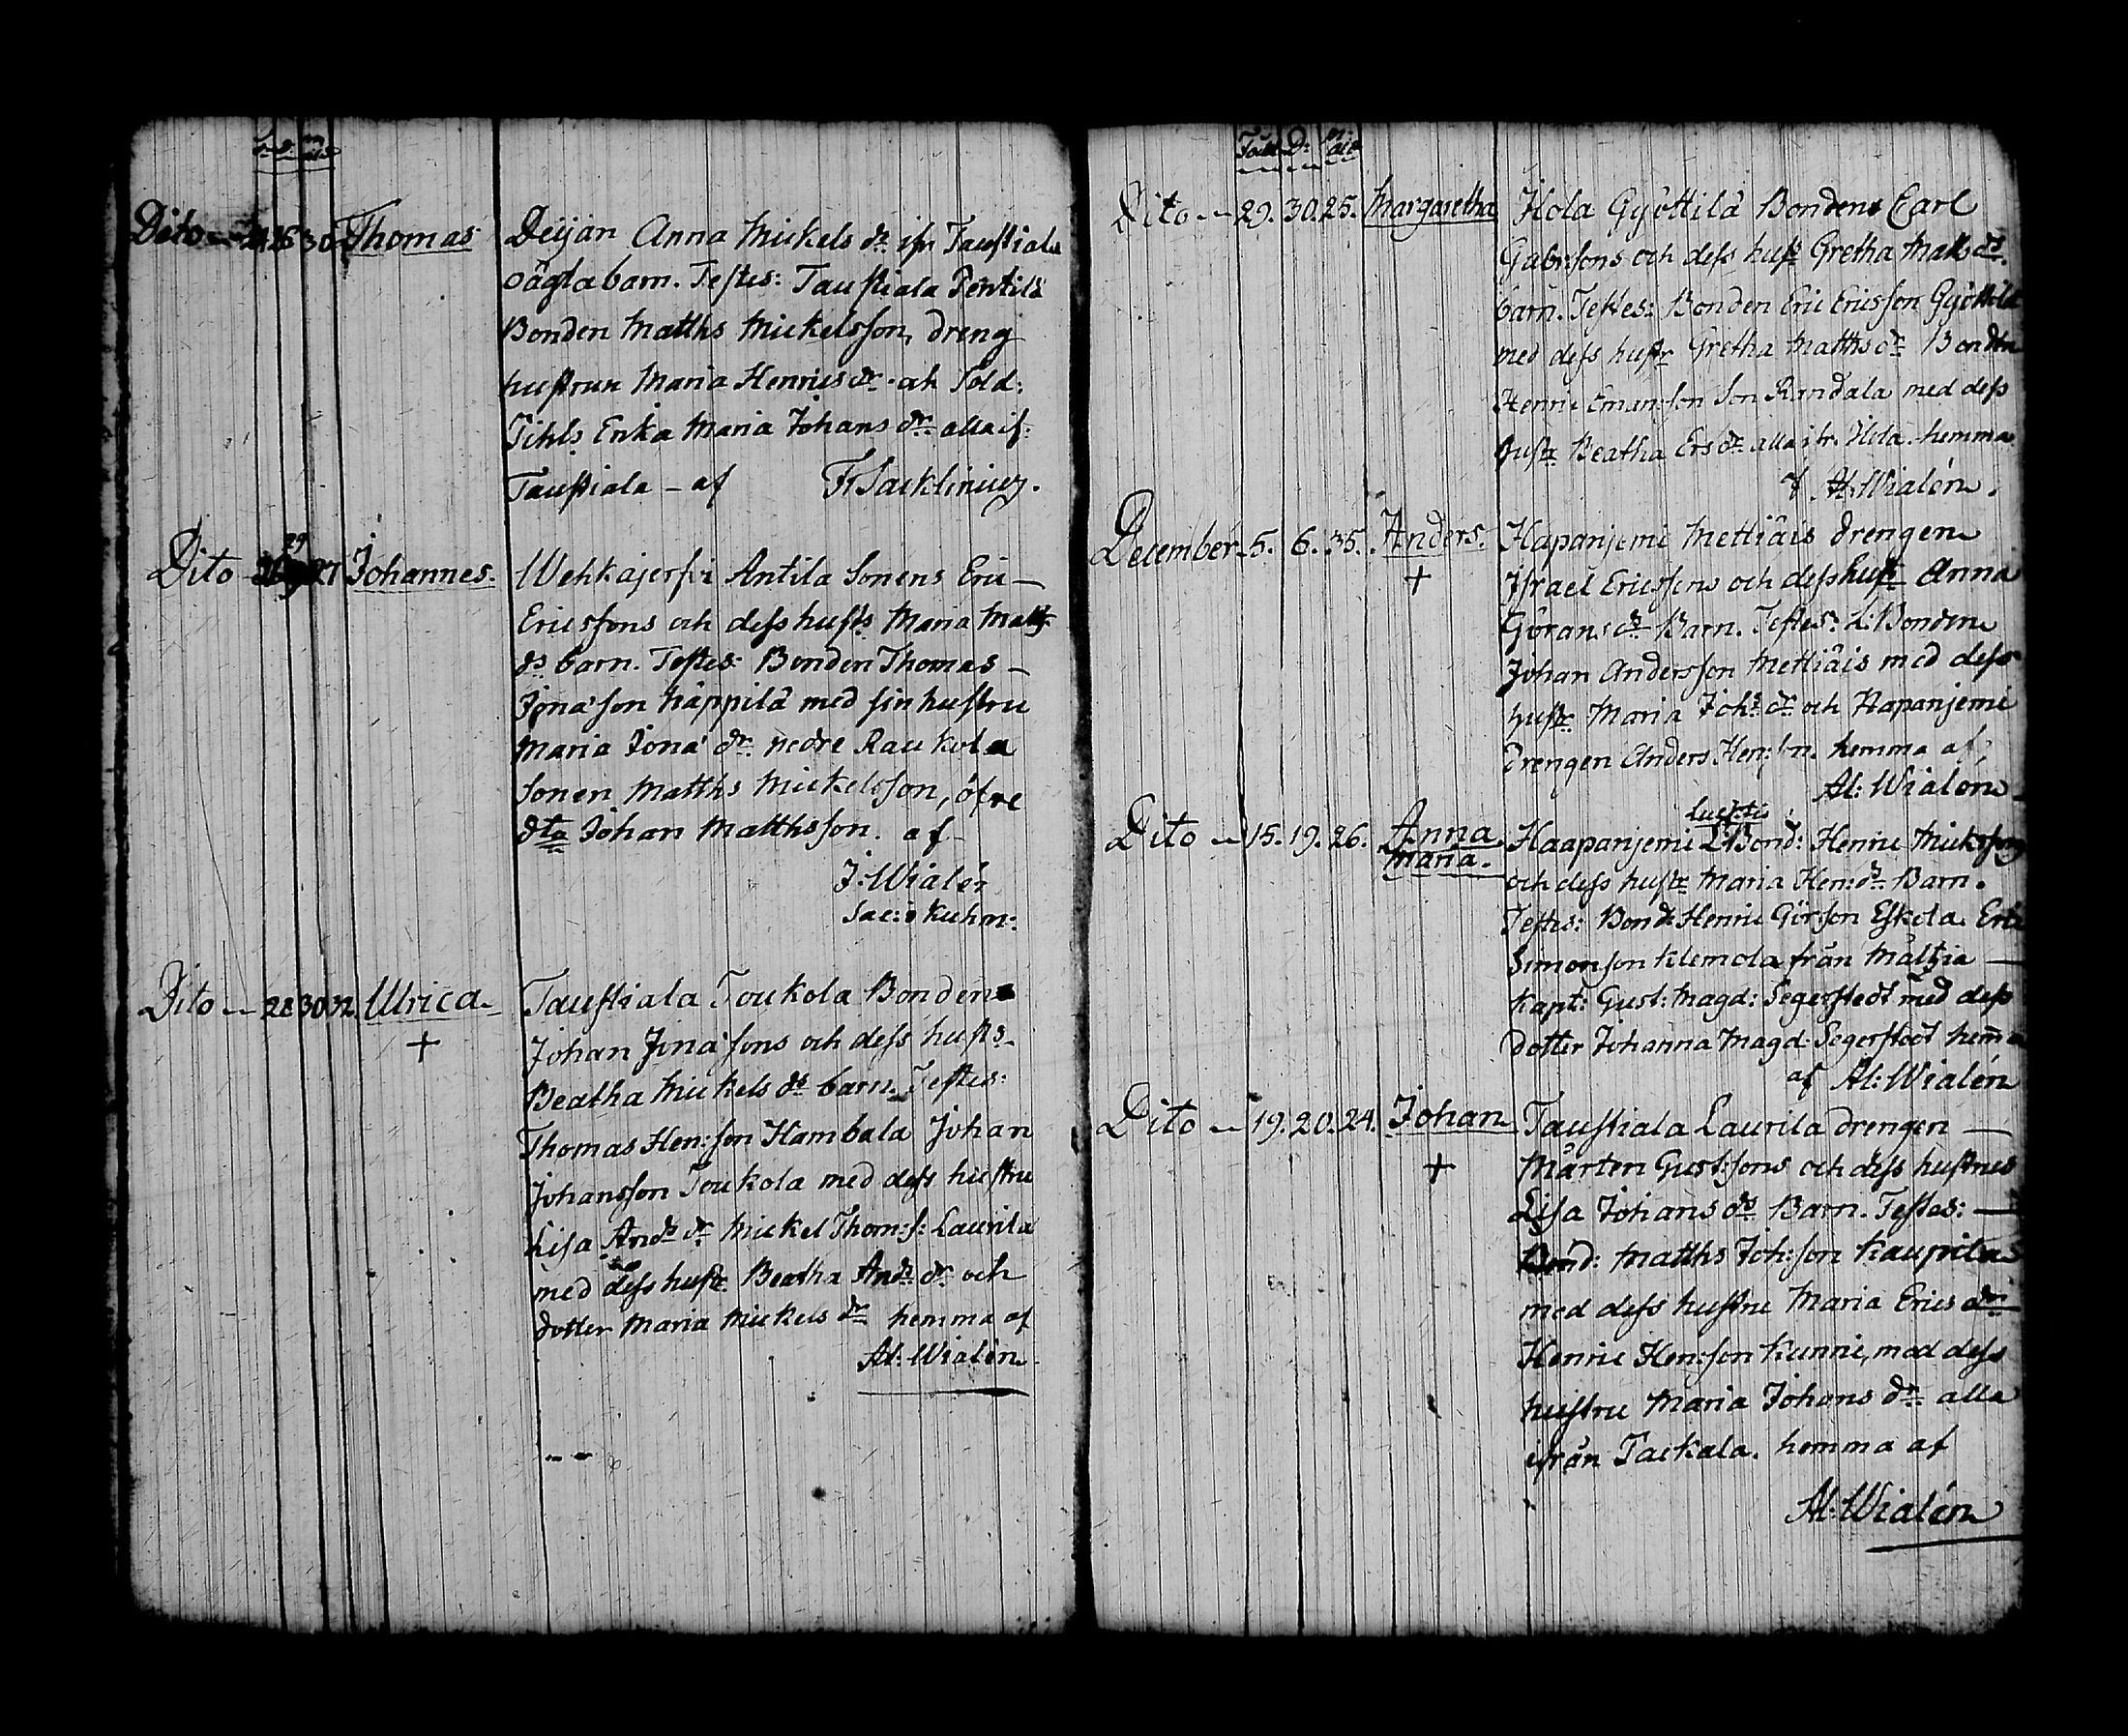 Dito 24 26 30 Thomas Deijan Anna Mickels dr ifr Taustiala
oägta barn. Testes: Taustiala Pentilä
Bonden Matths Mickelsson, dreng
hustrun Maria Henrics dr och Sold:
Tihls Enka Maria Johans dr alla if:
Taustiala – af
Dito 29 27 Johannes. Wehkajerfvi Antila Sonens Eric
Ericssons och dess hustrs Maria Matts
ds barn. Testes: Bonden Thomas
Jonason Käppilä med sin hustru
Maria Jona dr nedre Raukola
Sonen Matths Mickelsson, öfre
dto Johan Matthsson. af
J: Wialén
Sac: i Kuhm:
Dito 28 30 32. Ulrica. Taustiala Toukola Bonden
+ Johan Jonasons och dess hustrs
Beatha Mickels ds barn. Testes:
Thomas Hen:son Hambala Johan
Johansson Toukola med dess hustru
Lisa Ands dr Mickel Thom:s: Laurila
med dess hustr Beatha Ands dr och
dotter Maria Mickels dr hemma af
Al: Wialén
Dito 29. 30. 25. Margaretha Ilola Gyöttilä Bondens Carl
Gabr:sons och dess hustr Gretha Matts ds
barn. Testes: Bonden Eric Ericsson Gyöttilä
med dess hustr Gretha Matths dr Bonden
Henric Emanson Son Randala med dess
hustr Beatha Ers dr alla ifr. Ilola. hemma
af Al: Wialén.
December 5. 6. 35. Anders. Hapanjemi Mettiäis drengen
+ Israel Ericssons och dess hustr Anna
Görans ds Barn. Testes: L: Bonden
Johan Andersson Mettiäis med dess
hustr Maria Joh: dr och Hapanjemi
drengen Anders Hen:son. hemma af
Al: Wialén
Dito 15. 19. 26. Anna Haapanjemi L: Bond: Henric Micksons
Maria. och dess hustr Maria Hen: ds Barn.
Testes: Bond: Henric Görson Eskola Eric
Simonson Klemola från Mältzia
Kapt: Gust: Magd: Segerstedt med dess
dotter Johanna Magd: Segerstedt hemma
af Al: Wialén
Dito 19. 20. 24. Johan Taustiala Laurila drengen
+ Mårten Gust:sons och dess hustrus
Lisa Johans ds Barn. Testes:
Bond: Matths Joh:son Kaupila
med dess hustru Maria Erics dr
Henric Hen:son Kunni, med dess
hustru Maria Johans dr alla
ifrån Tackala. hemma af
Al: Wialén